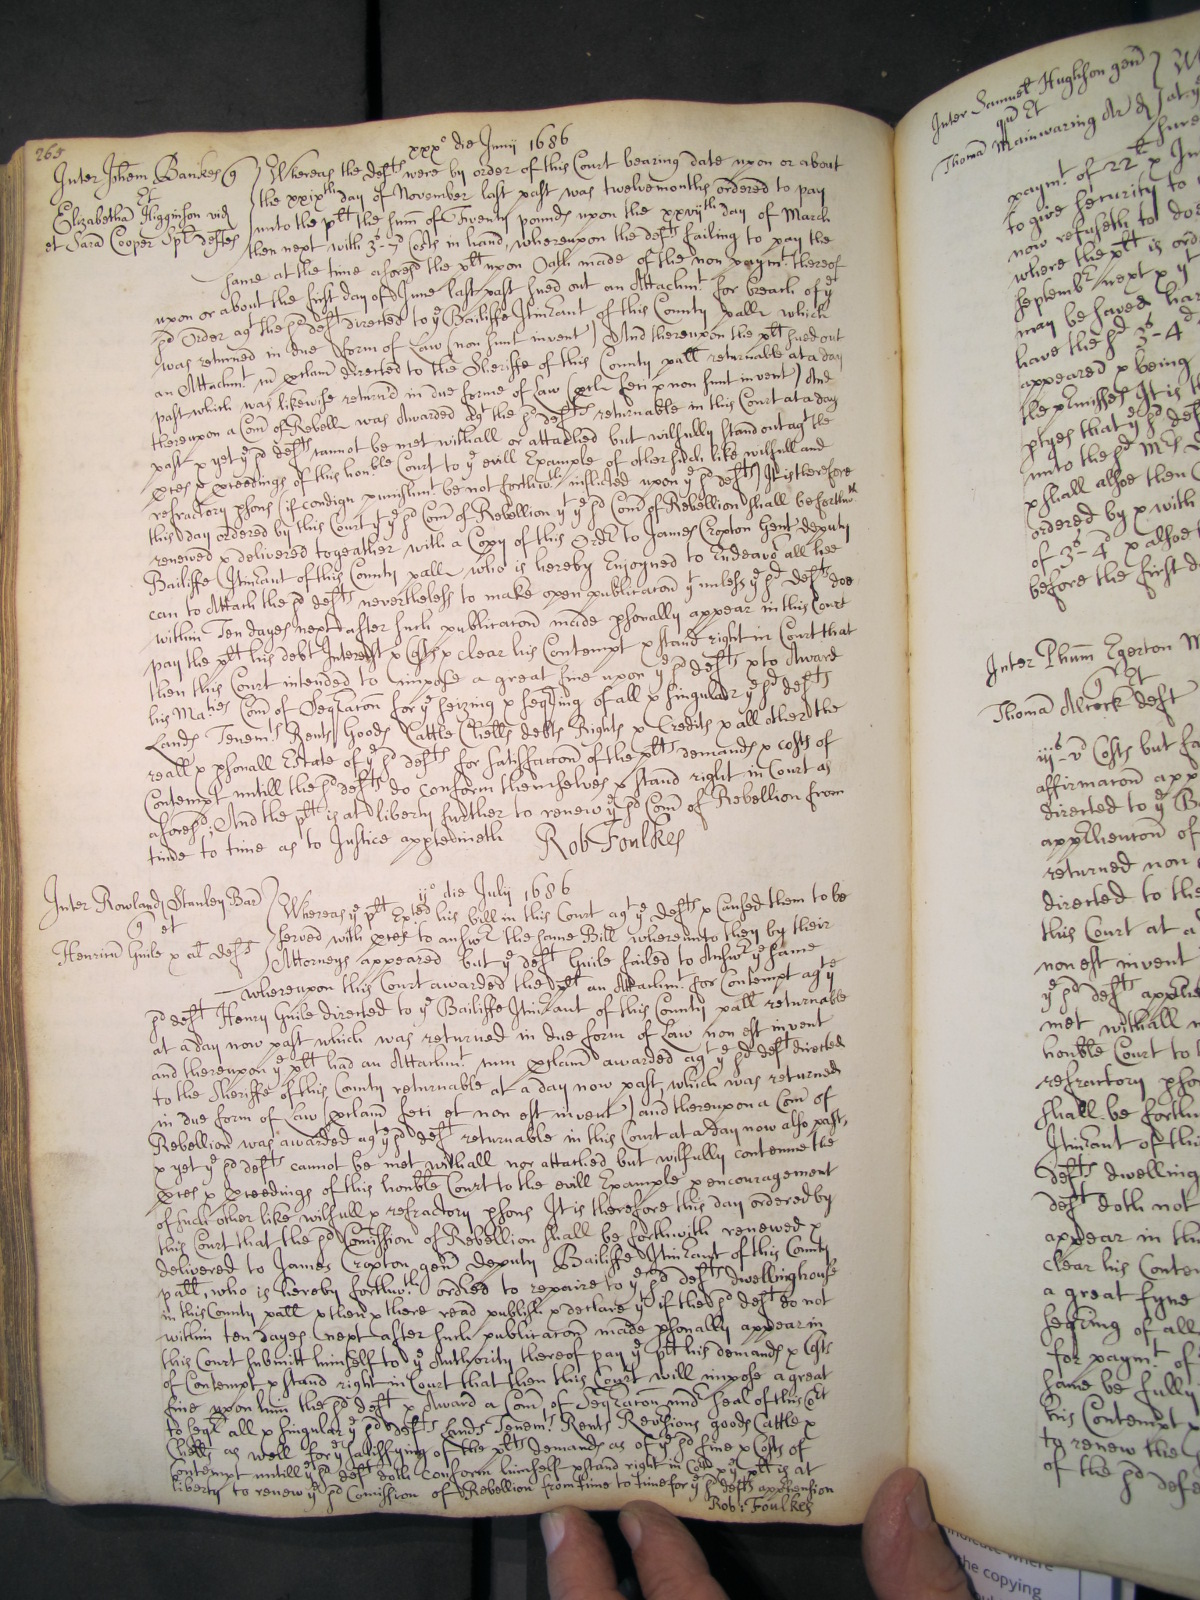 265
xxx° die Junij 1686
Inter Johem Bankes q
et
Elizabetham Higginson vid
et Sara Cooper Spr deftes
Whereas the defts were by order of this Court bearing date upon or about
the xxixth day of November last past was twelvemonths ordered to pay
unto the plt the summ of Twenty pounds upon the xxviijth day of March
then next with 3s-4d Costs in hand, whereupon the defts failing to pay the
same at the time aforesd the plt upon Oath made of the non paymt thereof
upon or about the first day of June last past sued out an Attachmt for breach of ye
sd Order agt the sd deft directed to ye Bailiffe Itinerant of this County pall which
was returned in due form of Law (non sunt invent) And thereupon the plt sued out
an Attachmt cu proclam directed to the Sheriffe of this County pall returnable at a day
past which was likewise returnd in due forme of Law (procl feci & non sunt invent) And
thereupon a Com of Rebell was Awarded agt the sd defts returnable in this Court at a day
past & yet ye sd defts cannot be met withall or attached but wilfully stand out agt the
pces & pceedings of this honble Court to ye evill Example of other such like wilfull and
refractory psons if condign punishmt be not forthwth inflicted upon ye sd defts) It is therefore
this day ordered by this Court yt ye sd Com of Rebellion yt ye sd Com of Rebellion shall be forthwth
renewed & delivered togeather with a Copy of this Order to James Cropton Gent deputy
Bailiffe Itinrant of this County pall who is hereby Enjoyned to Endeavor all hee
can to Attach the sd defts nevertheless to make open publicacon yt unless ye sd defts doe
within Ten dayes next after such publicacon made psonally appear in this Court
pay the plt his debt Interest & Costs & clear his Contempt & stand right in Court that
then this Court intended to impose a great fine upon ye sd defts & to Award
his Maties Com of Seqracon for ye seizing & seqring of all & singular ye sd defts
Lands Tenemts Rents Goods Cattle Chells debts Rights & Credits & all other the
reall & psonall Estate of ye sd defts for satisfaccon of the plts demands & costs of
Contempt untill the sd defts do conform themselves & stand right in Court as
aforesd; And the plt is at liberty further to renew ye sd Com of Rebellion from
time to time as to Justice apptedineth Rob Foulkes
ij° die Julij 1686
Inter Rowland Stanley Bar
q et
Henricu Guile & al defts
Whereas ye plt Exted his bill in this Court agt ye defts & Caused them to be
served with pces to answr the same Bill whereunto they by their
Attorneys appeared but ye deft Guile failed to Answr ye same
whereupon this Court awarded the plt an Attachmt for Contempt agt ye
sd deft Henry Guile directed to ye Bailiffe Itinrant of this County pall returnable
at a day now past which was returned in due form of Law non est invent
and thereupon ye plt had an Attachmt cum pclam awarded agt ye sd deft directed
to the Sheriffe of this County returnable at a day now past, which was returned
in due form of Law (pclam feci et non est invent) and thereupon a Com of
Rebellion was awarded agt ye sd deft returnable in this Court at a day now also past,
& yet ye sd defts cannot be met withall nor attached but wilfully contemne the
pces & pceedings of this honble Court to the evill Example & encouragement
of such other like wilfull & refractory psons It is therefore this day ordered by
this Court that the sd Comission of Rebellion shall be forthwith renewed &
delivered to James Cropton gen Deputy Bailiffe Itinrant of this County
pall, who is hereby forthwth ordred to repaire to ye sd defts dwellinghouse
in this County pall & then & there read publish & declare yt if the sd deft do not
within ten dayes next after such publicacon made psonally appear in
this Court submitt himself to ye Authority thereof pay ye plt his demands & Costs
of Contempt & stand right in Court that then this Court will impose a great
fine upon him the sd deft & Award a Com of Seqracon undr seal of this Crt
to seqr all & singular ye sd defts Lands Tenemts Rents Revsions goods Cattle &
Chells as well for ye satisfying of the plts demands as of ye sd fine & Costs of
Contempt untill ye sd deft doth conform himself & stand right in Court & ye plt is at
liberty to renew ye sd Comission of Rebellion from time to time for ye sd defts apphension
Rob: Foulkes
Inter Samuel Hughson gen
qu Et
Thoma Mainwaring Ar
at ye
paymt of 22
to give security to
now refuseth to doe
where the plt is ord
Septembr next & yt
may be saved har
have the sd 3s-4d
appeared & being
the pmisses It is
ptyes that ye sd def
unto the sd Mrs
& shall alsoe then
ordered by & with
of 3s-4d & alsoe
before the first d
Inter Phum Egerton M
q Et
Thoma Alcock deft
iijs-vd Costs but fa
affirmacon app
directed to ye Ba
apphencon of
returned non
directed to the
this Court at a
non est invent
ye sd defts apphe
met withall n
honble Court to t
refractory pso
shall be forth
Itinrant of this
defts dwelling
deft doth not
appear in thi
clear his Conte
a great fyne
seqring of all
for paymt of
same be fully
his Contempt
to renew the
of the sd defe
indicate where
the copying